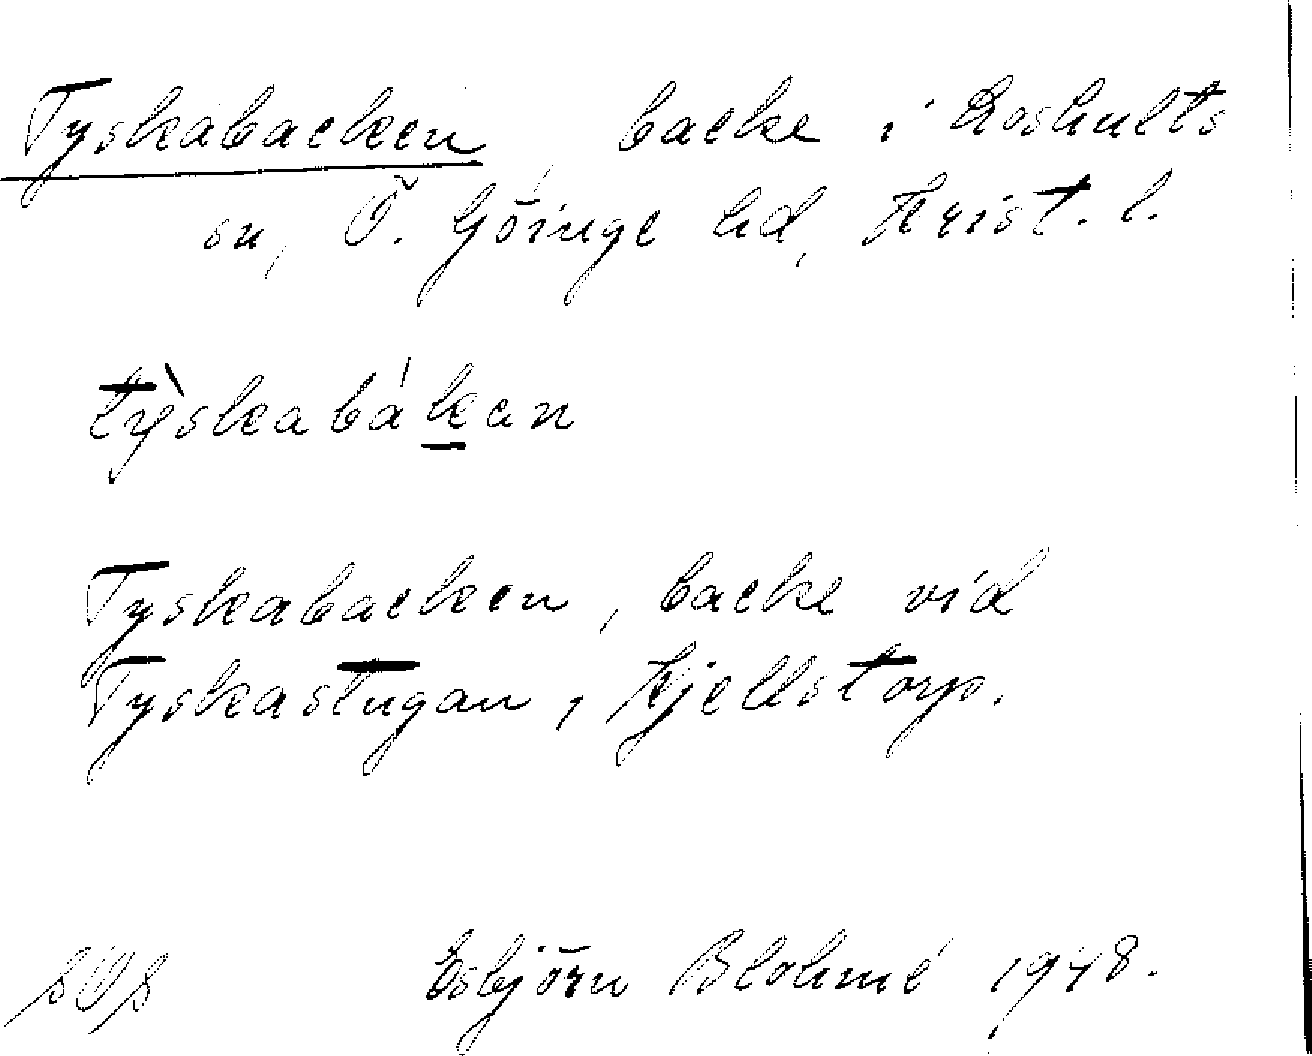 Tyskabacken, backe i Loshults
sn, Ö. Göinge hd, Krist. l.
tỳskabákan
Tyskabacken, backe vid
Tyskastugan, Kjellstorp.
Esbjörn Blohmé 1948.